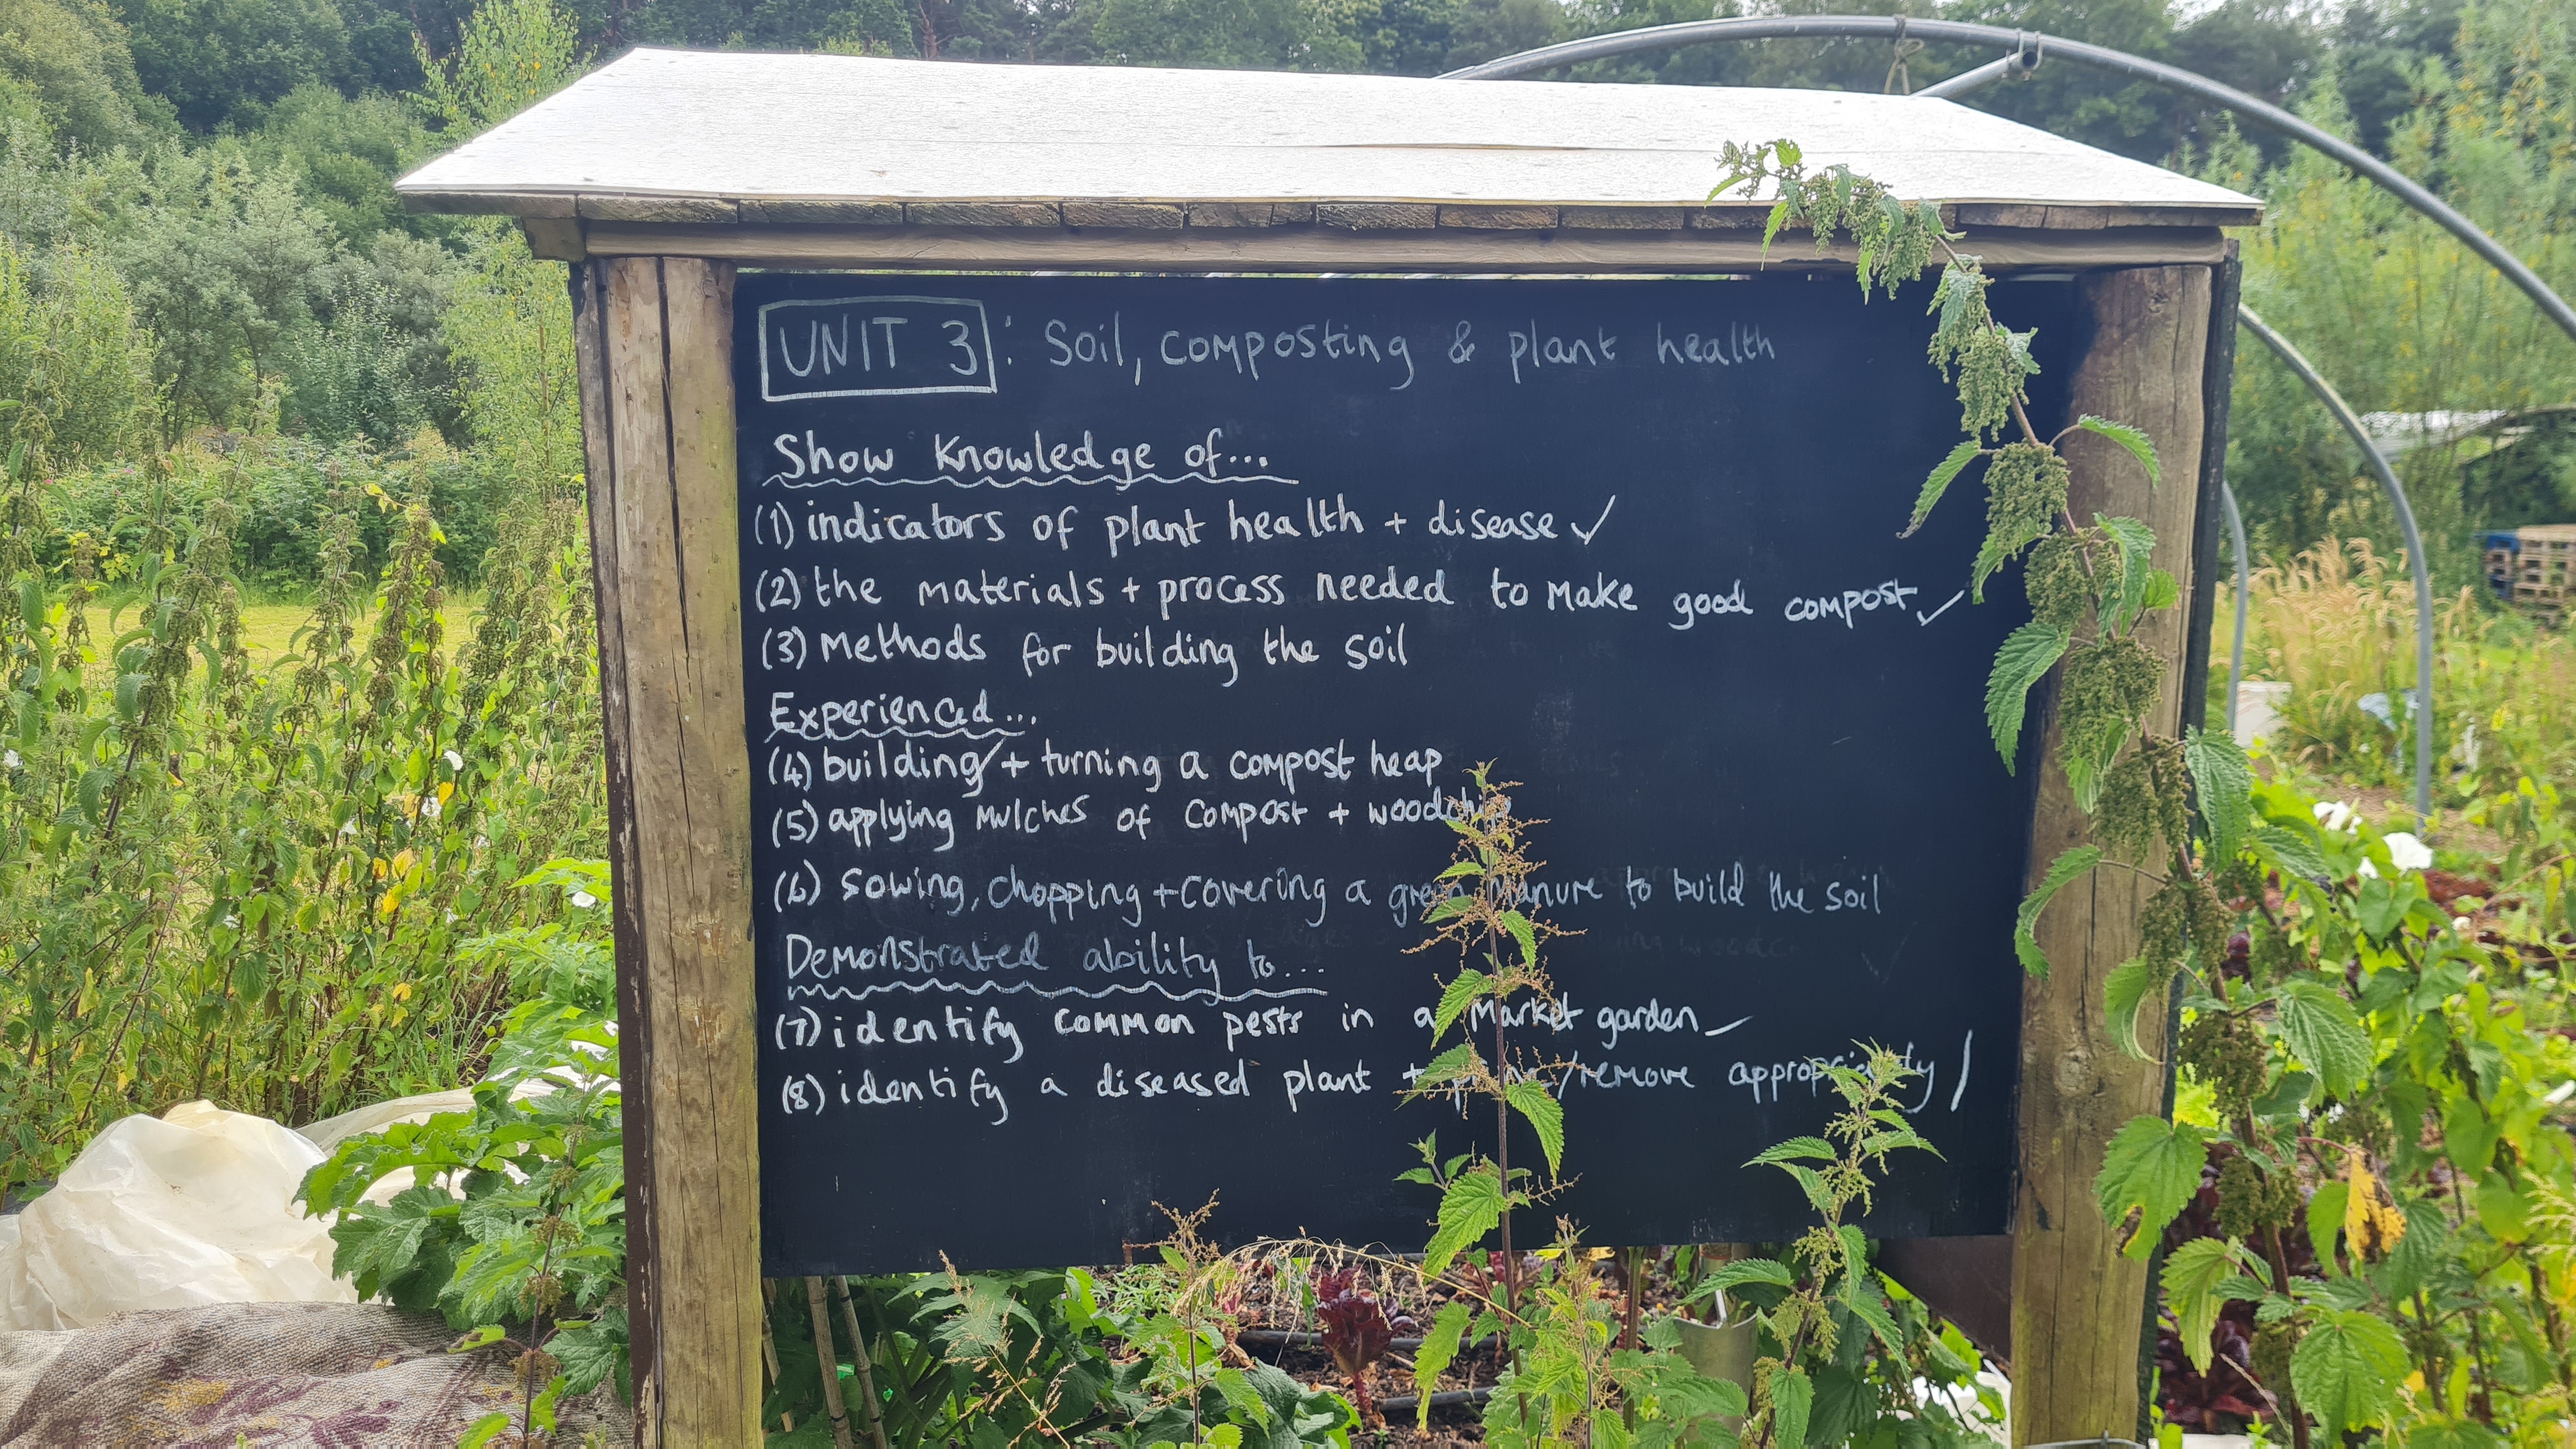 UNIT 3: Soil, composting & plant health
Show Knowledge of...
(1) indicators of plant health + disease ✓
(2) the materials + process needed to make good compost ✓
(3) methods for building the soil
Experienced...
(4) building ✓ + turning a compost heap
(5) applying mulches of compost + woodchip
(6) sowing, chopping + covering a green manure to build the soil
Demonstrated ability to...
(7) identify common pests in a market garden
(8) identify a diseased plant + prune/remove appropriately /